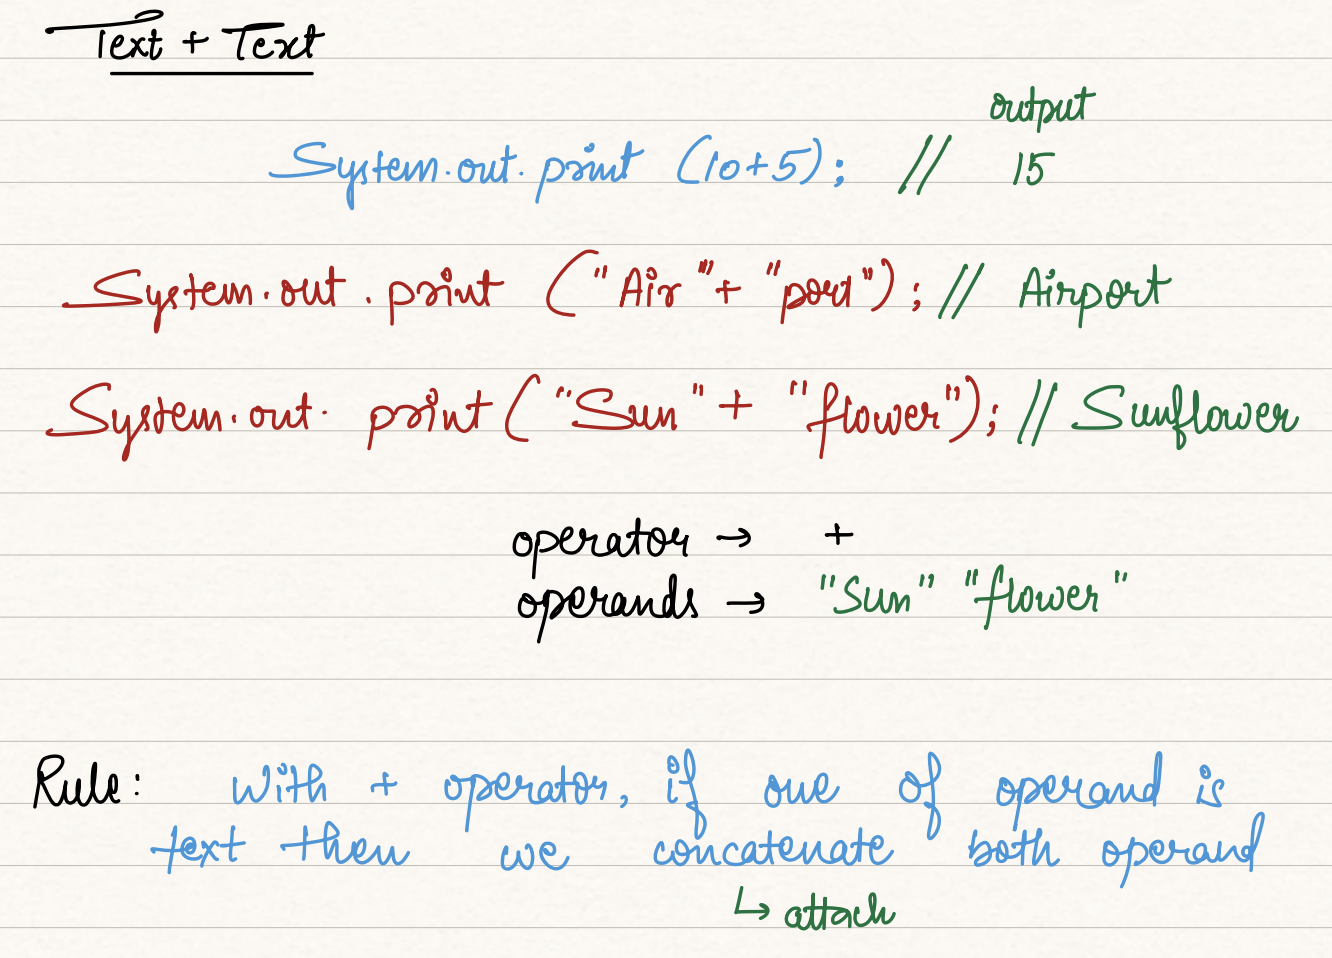 Text + Text
output
System.out.print (10+5); // 15
System.out.print ("Air"+ "port"); // Airport
System.out.print ("Sun" + "flower"); // Sunflower
operator → +
operands → "Sun" "flower"
Rule: With + operator, if one of operand is
text then we concatenate both operand
↳ attach